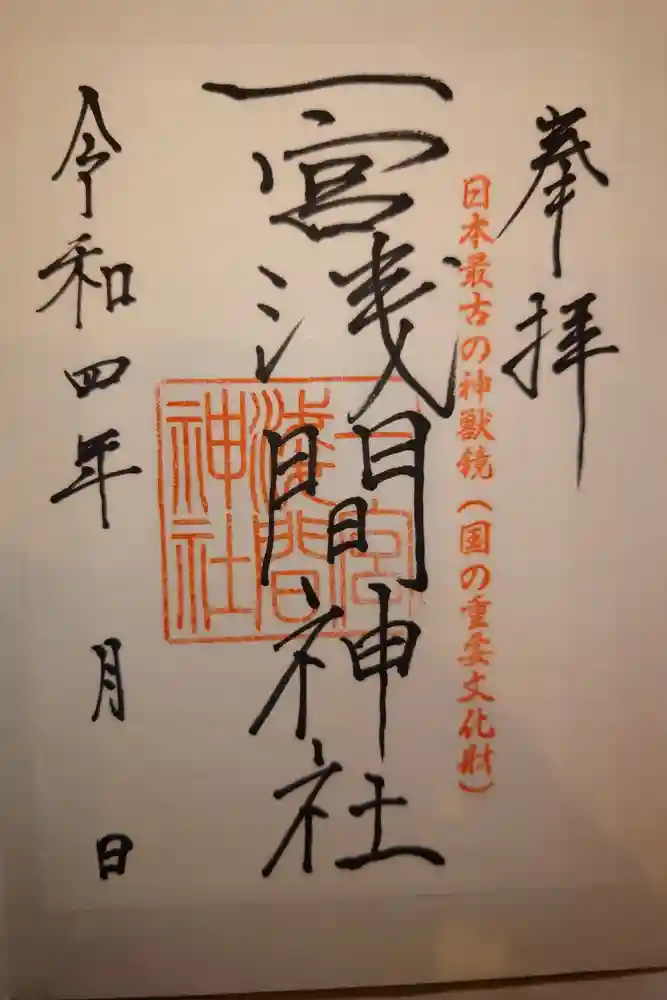 奉拝
日本最古の神獣鏡（国の重要文化財）
一宮浅間神社
一宮
浅間
神社
令和四年 月 日